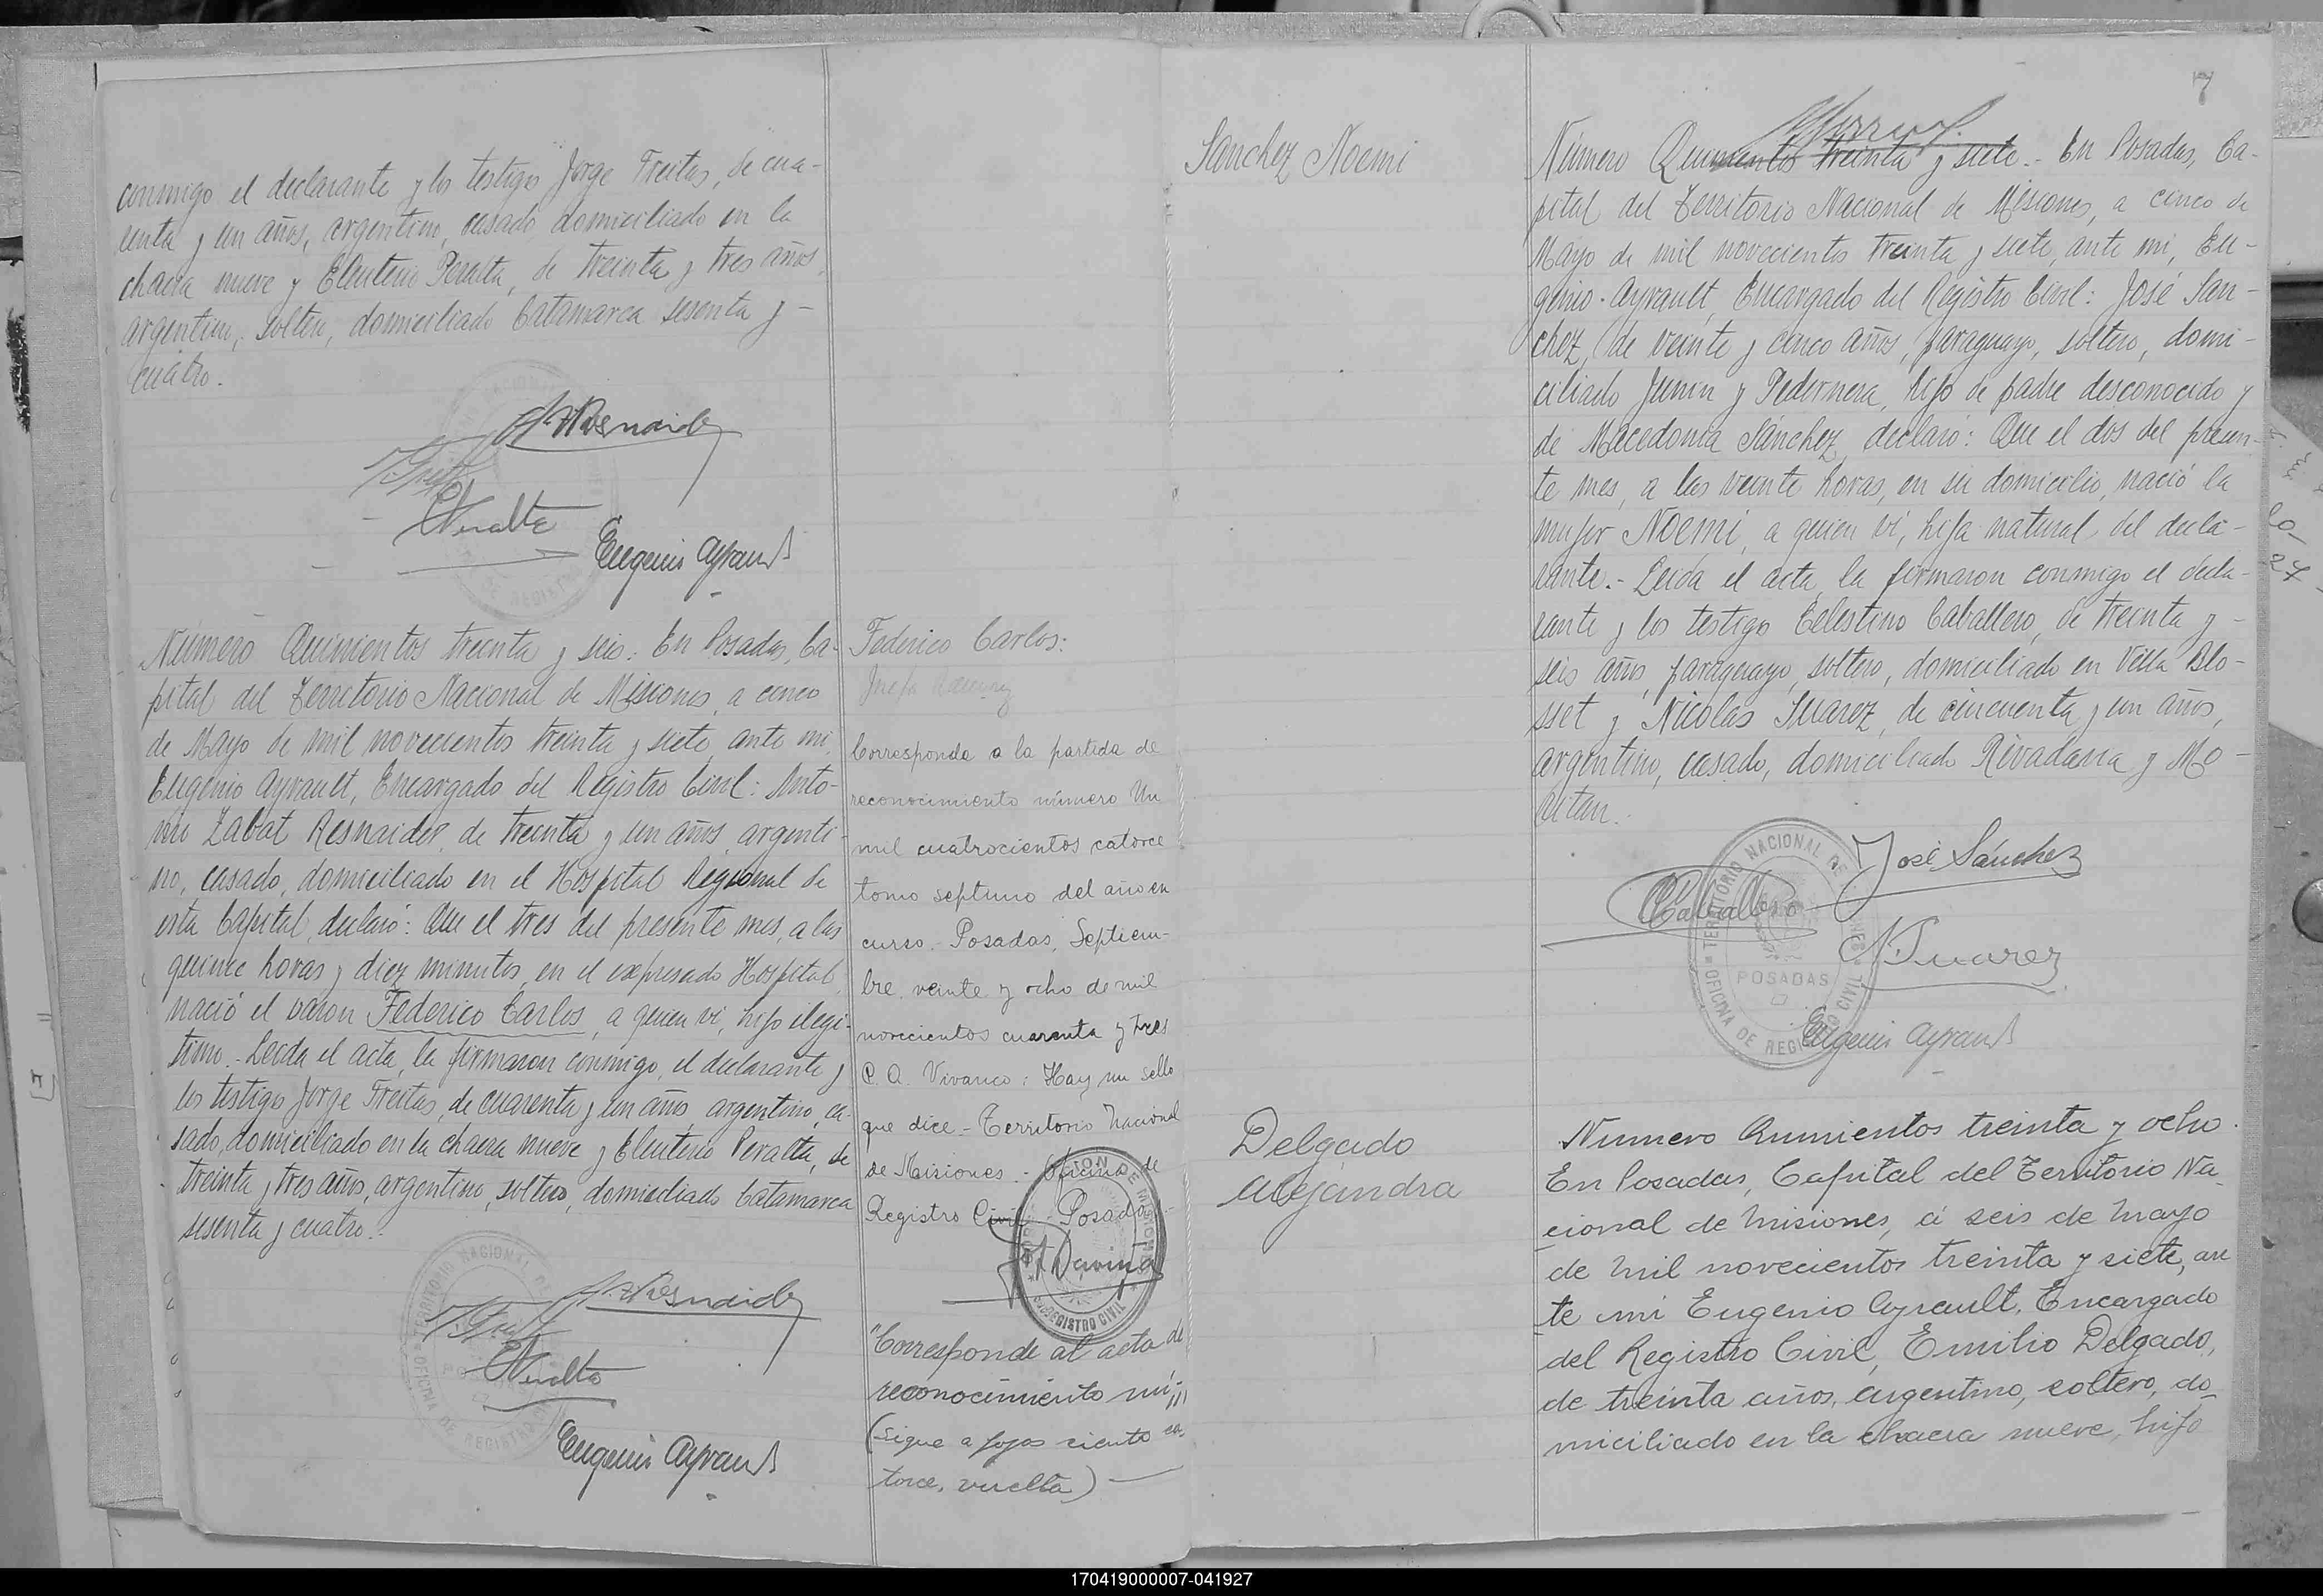 conmigo el declarante y los testigo Jorge Freitas, de cua-
renta y un años, argentino, casado, domiciliado en la
chacra nueve y Eleuterio Peralta, de treinta y tres años,
argentino, soltero, domiciliado Catamarca sesenta y -
cuatro.
EPeralta
Eugenio Ayrault
Número Quinientos treinta y seis: En Posadas, Ca-
pital del Territorio Nacional de Misiones, a cinco
de Mayo de mil novecientos treinta y siete, ante mi,
Eugenio Ayrault, Encargado del Registro Civil: Anto-
nio Zabat Resnaider, de treinta y un años, argenti-
no, casado, domiciliado en el Hospital Regional de
esta Capital, declaró: Que el tres del presente mes, a las
quince horas y diez minutos, en el expresado Hospital,
nació el varon Federico Carlos, a quien vi, hijo ilegi-
timo.- Leida el acta, la firmaron conmigo, el declarante y
los testigo Jorge Freitas, de cuarenta y un año, argentino, ca-
sado, domiciliado en la chacra nueve y Eleuterio Peralta, de
treinta y tres años, argentino, soltero, domiciliado Catamarca
sesenta y cuatro.-
TERRITORIO NACIONAL DE
OFICINA DE REGISTRO
EPeralta
Eugenio Ayrault
Federico Carlos:
Corresponde a la partida de
reconocimiento número Un
mil cuatrocientos catorce
tomo septimo del año en
curso. Posadas, Septiem-
bre veinte y ocho de mil
novecientos cuarenta y tres
C. A. Vivanco: Hay un sello
que dice - Territorio Nacional
de Misiones.- Oficina de
Registro Civil Posadas-
REGISTRO CIVIL
"Corresponde al acta de
reconocimiento nú-
(sigue a fojas ciento ca-
torce, vuelta)
7
Sánchez Noemi
Número Quinientos treinta y siete.- En Posadas, Ca-
pital del Territorio Nacional de Misiones, a cinco de
Mayo de mil novecientos treinta y siete, ante mi, Eu-
genio Ayrault, Encargado del Registro Civil: José San-
chez, de veinte y cinco años, paraguayo, soltero, domi-
ciliado Junin y Pedernera, hijo de padre desconocido y
de Macedonia Sánchez, declaró: Que el dos del presen-
te mes, a las veinte horas, en su domicilio, nació la
mujer Noemi, a quien vi, hija natural del decla-
rante.- Leida el acta, la firmaron conmigo el decla-
rante y los testigo Celestino Caballero, de treinta y -
seis años, paraguayo, soltero, domiciliado en Villa Blo-
sset y Nicolas Suarez, de cincuenta y un años,
argentino, casado, domiciliado Rivadavia y Mo-
ritan.
José Sánchez
CCaballero
NSuarez
TERRITORIO NACIONAL DE
POSADAS
OFICINA DE REGISTRO CIVIL
Eugenio Ayrault
Delgado
Alejandra
Numero Quinientos treinta y ocho.
En Posadas, Capital del Territorio Na
cional de Misiones, á seis de Mayo
de mil novecientos treinta y siete, an
te mi Eugenio Ayrault, Encargado
del Registro Civil, Emilio Delgado,
de treinta años, argentino, soltero, do
miciliado en la chacra nueve, hijo
170419000007-041927